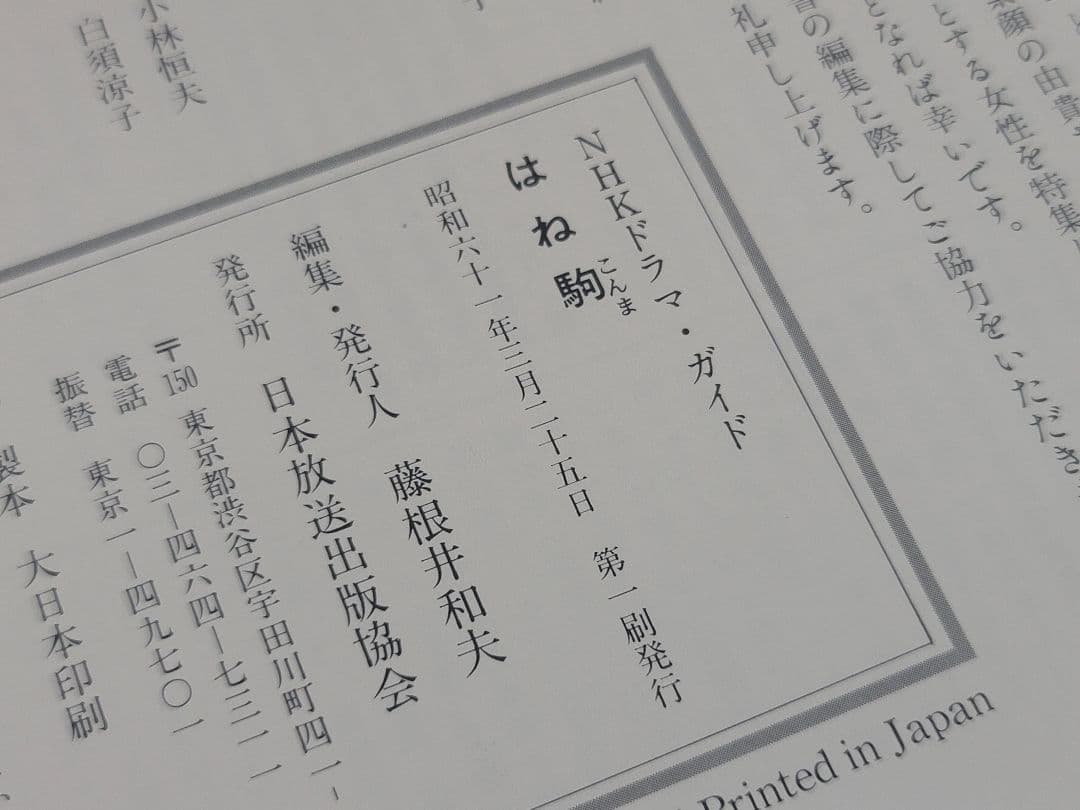 素顔の由貴
とする女性を特集
となれば幸いです。
の編集に際してご協力をいただき
礼申し上げます。
小林恒夫
白須涼子
NHKドラマ・ガイド
はね駒
こんま
昭和六十一年三月二十五日　第一刷発行
編集・発行人　藤根井和夫
発行所　日本放送出版協会
〒150 東京都渋谷区宇田川町四一－
電話　〇三－四六四－七三一一
振替　東京一－四九七〇一
製本　大日本印刷
Printed in Japan